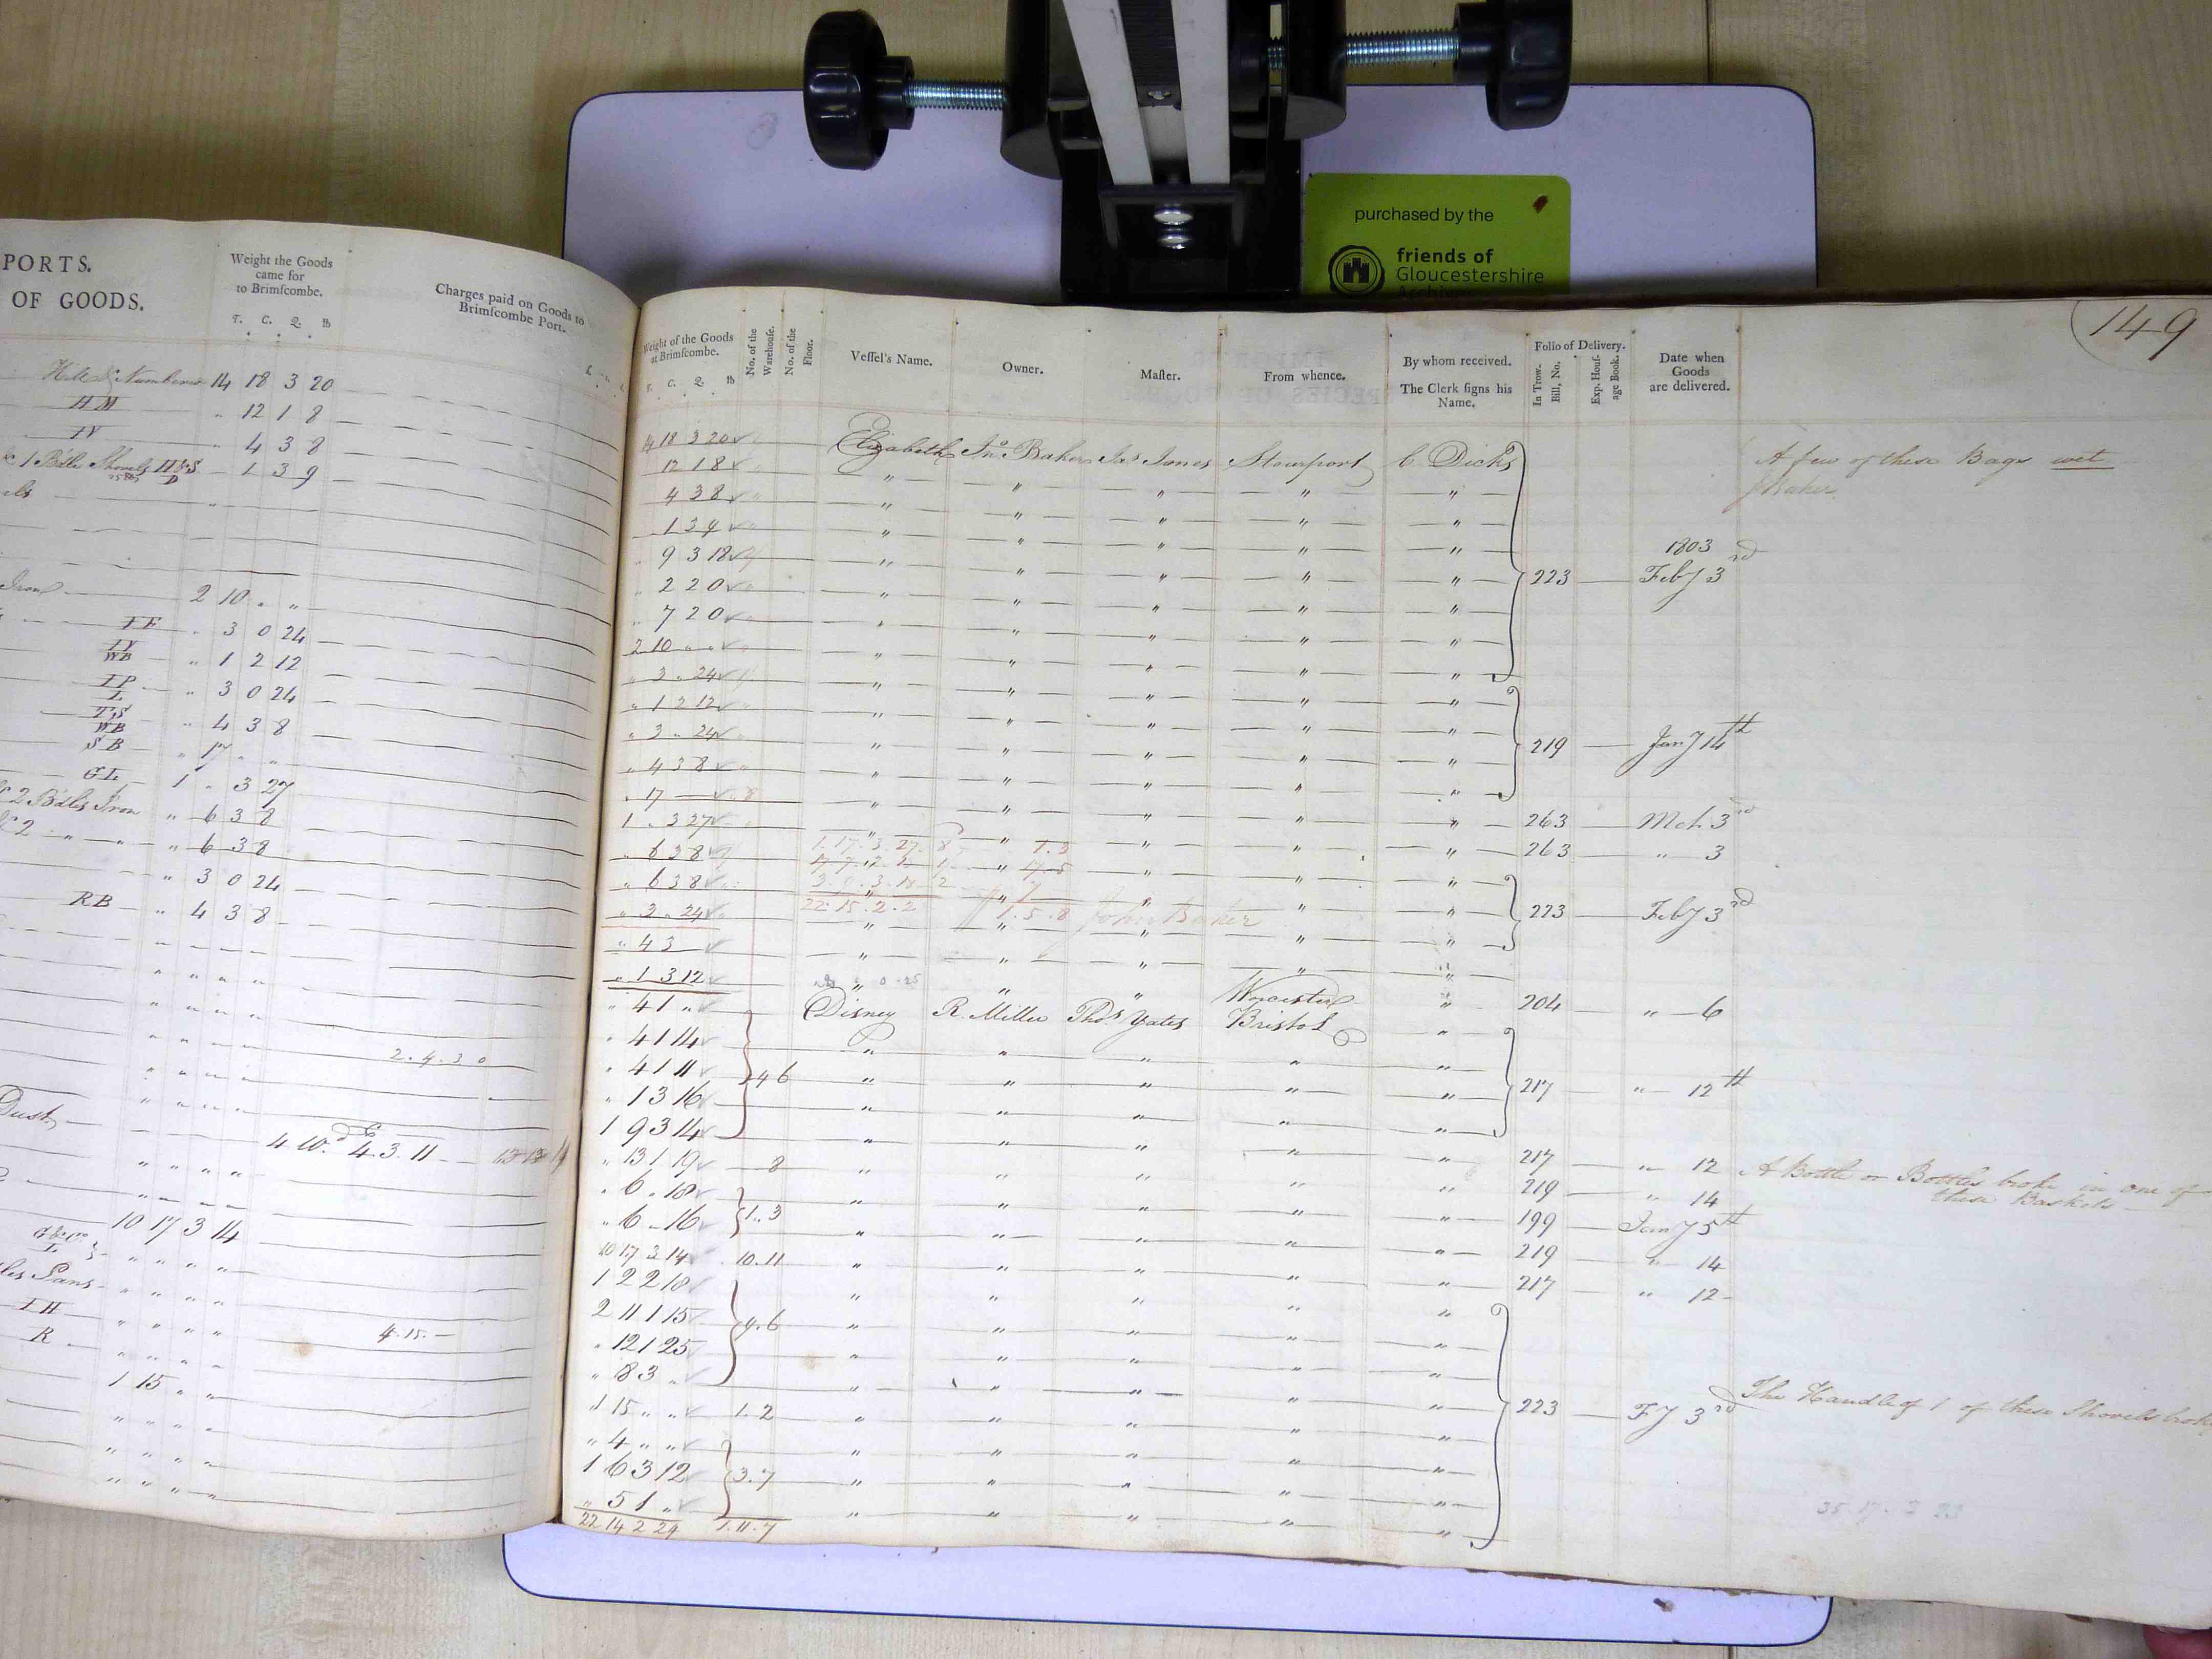 purchased by the
friends of
Gloucestershire
Archives
PORTS.
OF GOODS.
Weight the Goods
came for
to Brimſcombe.
T. C. Q. lb
Charges paid on Goods to
Brimſcombe Port.
14 18 3 20
HM " 12 1 8
IV " 4 3 8
1 3 9
Iron 2 10 " "
" 3 0 24
WB " 1 2 12
IP
L " 3 0 24
TS
WB " 4 3 8
SB " 17 " "
GL 1 " 3 27
& 2 Bdls Iron " 6 3 8
& 2 " " " 6 3 8
" 3 0 24
RB " 4 3 8
2. 4. 3 0
Dust
4. 3. 11
10 17 3 14
Pans
IH 4. 15. —
R
1 15 " "
149
Weight of the Goods
at Brimſcombe.
T. C. Q. lb
No. of the
Warehouſe.
No. of the
Floor.
Veſſel's Name.
Owner.
Maſter.
From whence.
By whom received.
The Clerk ſigns his
Name.
Folio of Delivery.
In Trow.
Bill, No.
Exp. Houſ-
age Book.
Date when
Goods
are delivered.
14 18 3 20 Elizabeth Jno. Baker Jas Jones Stourport C. Dicks A few of these Bags wet
12 1 8 " " " " " Baker
4 3 8 " " " " "
1 3 9 " " " " "
" 9 3 18 " " " " " 1803
" 2 2 0 " " " " " 223 Feby 3rd
" 7 2 0 " " " " "
2 10 " " " " " " "
" 3 " 24 " " " " "
" 1 2 12 " " " " "
" 3 " 24 " " " " " 219 Jany 14th
" 4 3 8 " " " " "
" 17 — " " " " "
1 " 3 27 " " " " " 263 Mch 3rd
" 6 3 8 " " " " " 263 " 3
" 6 3 8 " " " " "
" 3 " 24 " " " " " 223 Feby 3rd
22. 15. 2. 2 1. 5. 8 John Baker
" 4 3 — " " " " "
" 1 3 12 " " " Worcester "
" 4 1 " Disney R. Miller Thos Yates Bristol " 204 " 6
" 4 1 14 " " " " "
" 4 1 11 4 6 " " " " " 217 " 12th
" 1 3 16 " " " " "
1 9 3 14 " " " " "
" 13 1 19 8 " " " " " 217 " 12 A Bottle or Bottles broke in one of
" 6 " 18 " " " " " 219 " 14 these Baskets
" 6 " 16 1. 3 " " " " " 199 Jany 5th
10 17 3 14 10. 11 " " " " " 219 " 14
1 2 2 18 " " " " " 217 " 12
2 11 1 15 4. 6 " " " " "
" 12 1 25 " " " " "
" 8 3 " " " " " "
1 15 " " 1. 2 " " " " " 223 Fy 3rd The Handle of 1 of these Shovels broke
" 4 " " " " " " "
1 6 3 12 3. 7 " " " " "
" 5 1 " " " " " "
22 14 2 29 1. 11. 7